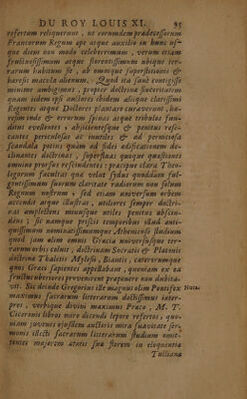 DU ROY LOUIS XI. 95
refertum reliquerunt, ut eorumdem prædecessorum
Francorum Regum ope atque auxilio in hunc us-
que diem non modo celebérrimum, verum etiam
fructuosissimum atque florentissimum ubique ter-
rarum habitum sit, ab omnique superstitione &
hæresis macula alienum. Quod ita sanè contigisse
minime ambigimus, propter doctrina sinceritatem
quam iidem ipsi auctores ibidem aliique clarissimi
Regentes atque Doctores plantare curaverunt, hæ-
resim inde & errorum spinas atque tribulos fun-
ditus evellentes, abjicientesque & penitus rese-
cantes periculosas ac inutiles & ad perniciosa
scandala potius quàm ad fidei ædificationem de-
clinantes doctrinas, superfluas quoque quæstiones
omnino prorsus rescindentes: præcipue clara Theo-
logorum facultas quæ velut sydus quoddam ful-
gentissimum suorum claritate radiorum non solum
Regnum nostrum, sed etiam universum orbem
accendit atque illustrat, utiliores semper doctri-
nas amplectens minusque utiles penitus abjicen-
dans: sic namque priscis temporibus illud anti-
quissimum nominatissimumque Atheniense studium
quod jam olim omnis Græcia universusque ter-
rarum orbis coluit, doctrinam Socratis & Platonis
doctrina Thaletis Mylesii, Biantis, caterorumque
quos Græci sapientes appellabant, quoniam ex ea
fructus uberiores provenirent præponere non dubita-
vit. Sic deinde Gregorius ille magnus olim Pontifex Nota.
maximus sacrarum litterarum doctissimus inter-
pres, verbique divini maximus Præco, M. T.
Ciceronis libros miro dicendi lepore refertos, quo-
niam juvenes ejusdem auctoris mira suavitate ser-
monis illecti sacrarum litterarum studium omit-
tentes majorem ætatis suæ florem in eloquentia
Tulliana